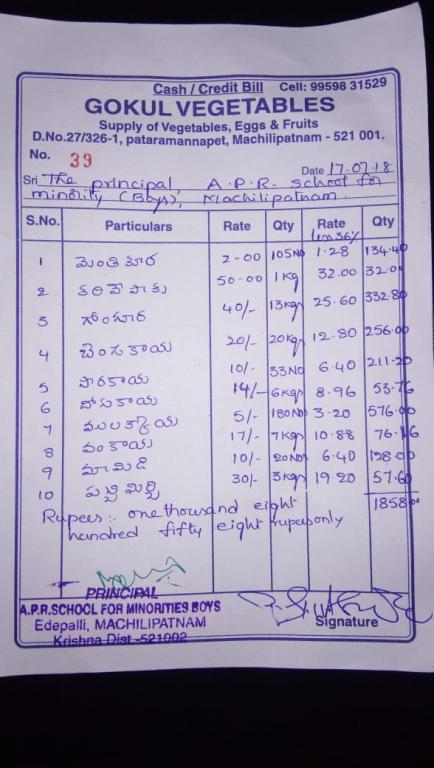 Cash / Credit Bill Cell: 99598 31529
GOKUL VEGETABLES
Supply of Vegetables, Eggs & Fruits
D.No.27/326-1, pataramannapet, Machilipatnam - 521 001.
No. 39 Date 17-07-18
Sri The principal, A.P.R. School for
minority (Boys), Machilipatnam.
S.No. Particulars Rate Qty Rate Qty
1 మెంతికూర 2-00 105No 1.28 134.40
2 కరివేపాకు 50-00 1Kg 32.00 32.00
3 గోంగూర 40/- 13Kgs 25.60 332.80
4 బెండకాయ 20/- 20Kgs 12.80 256.00
5 10/- 33NO 6.40 211-20
6 దోసకాయ 14/- 6Kgs 8.96 53.76
7 ములక్కాయ 5/- 180NO 3-20 576.00
8 వంకాయ 17/- 7Kgs 10.88 76.16
9 మామిడి 10/- 20NOs 6.40 128.00
10 30/- 3Kgs 19.20 57.60
Rupees:- one thousand eight 1858.00
hundred fifty eight rupees only
PRINCIPAL
A.P.R.SCHOOL FOR MINORITIES BOYS
Edepalli, MACHILIPATNAM
Krishna Dist -521002
Signature